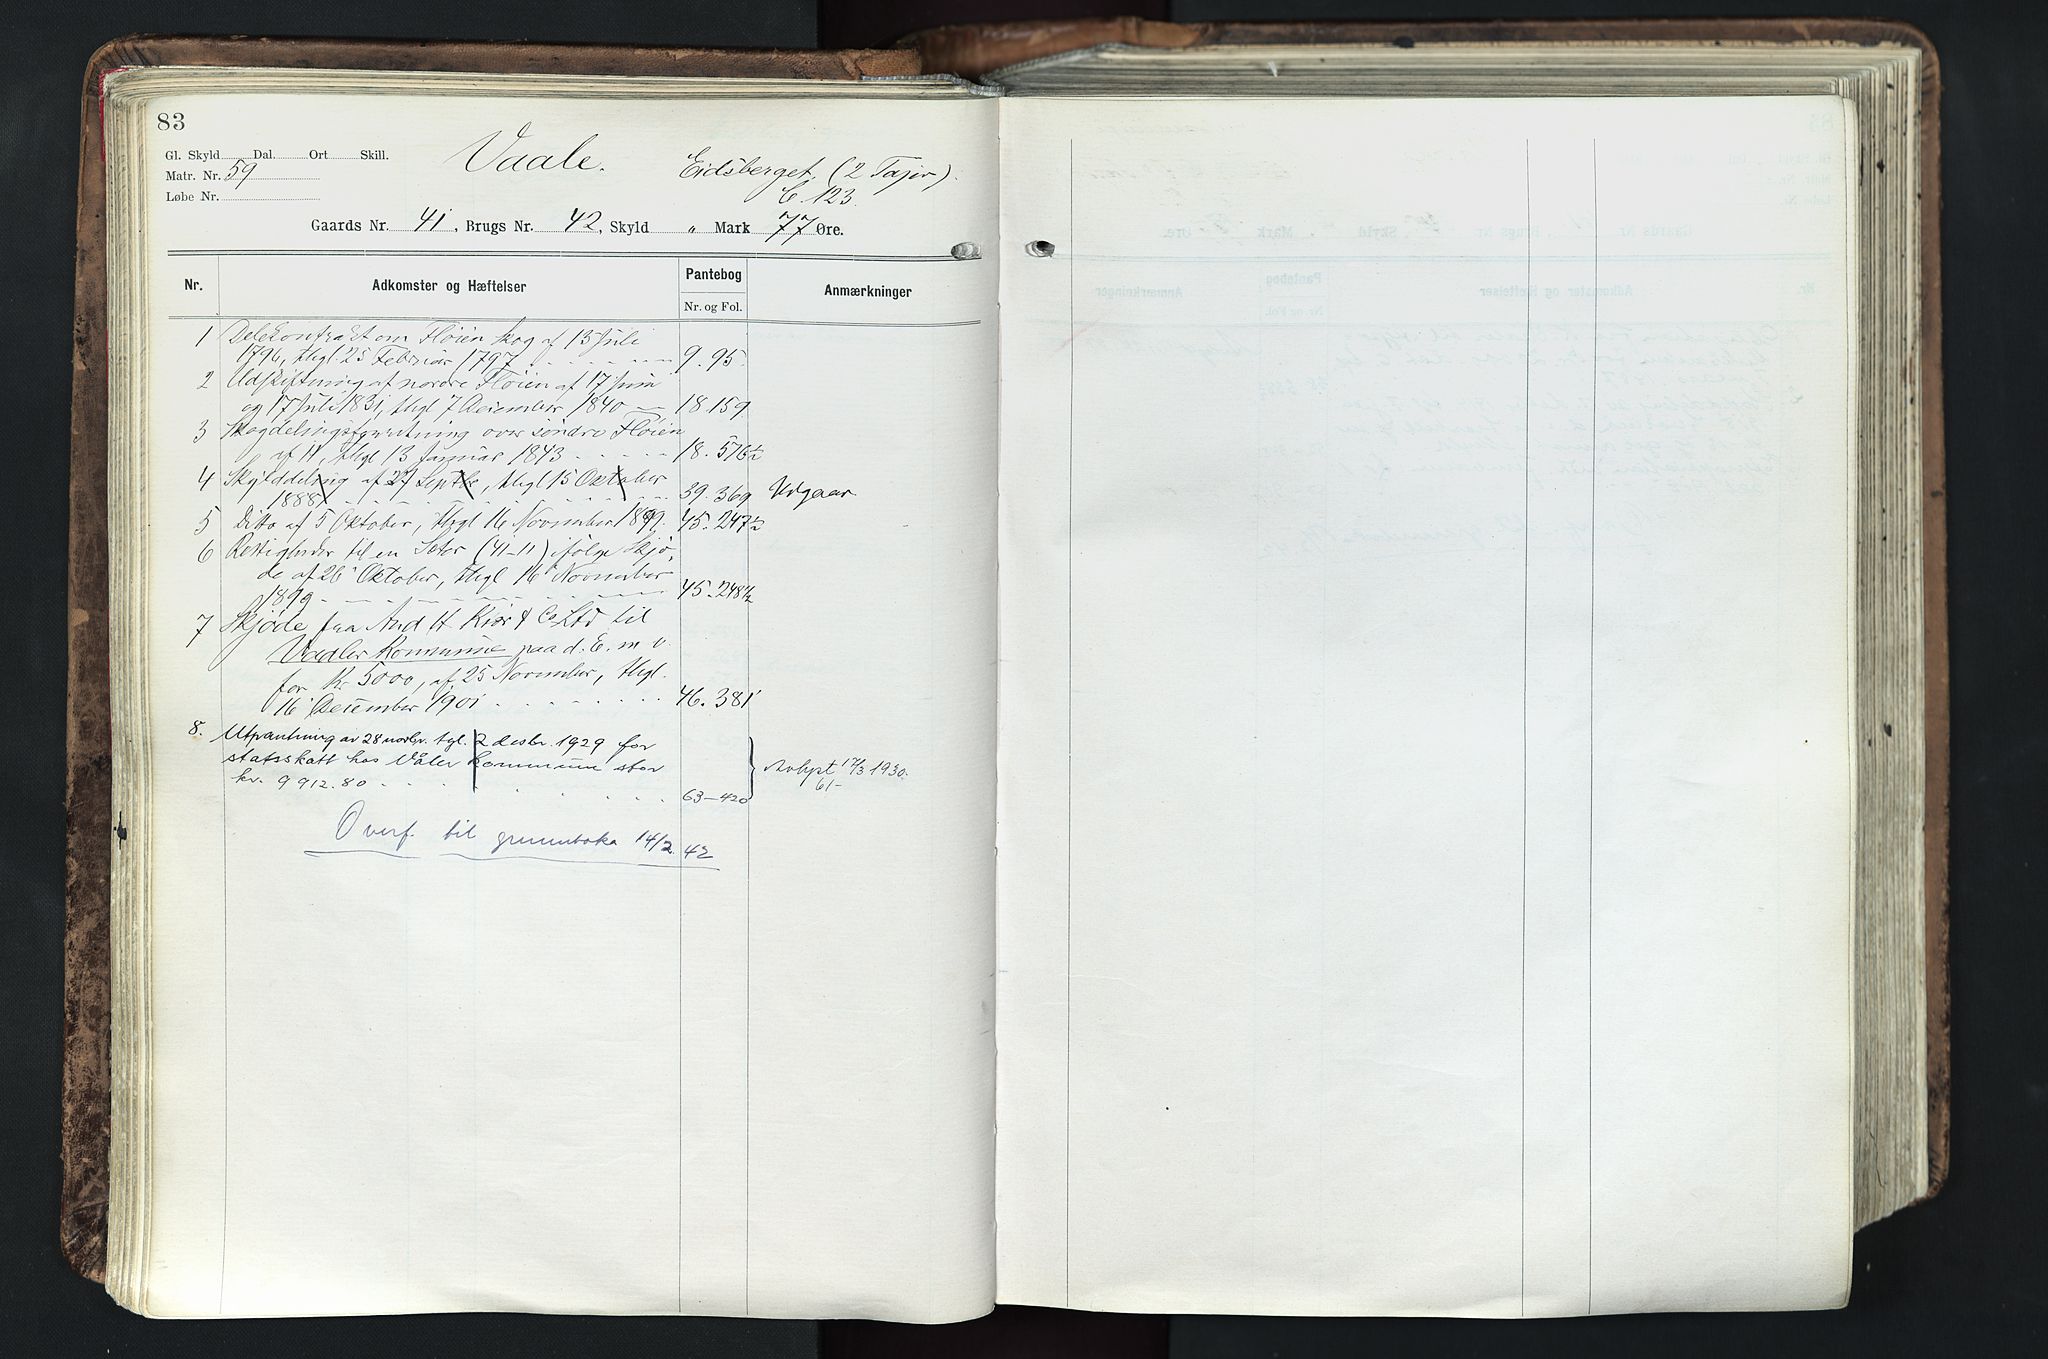 83
Gl. Skyld Dal. Ort Skill.
Matr. Nr. 59
Løbe Nr.
Vaale.
Eidsberget, (2 Tajer).
C. 123.
Gaards Nr. 41, Brugs Nr. 42, Skyld " Mark 77 Øre.
Nr. Adkomster og Hæftelser Pantebog Nr. og Fol. Anmærkninger
1 Delekontrakt om Fløien skog af 13 Juli
1796, thgl. 25 Februar 1797 9. 95.
2 Udskiftning af nordre Fløien af 17 Juni
og 17 Juli 1831, thgl 7 December 1840 18. 159.
3 Skogdelingsforretning over søndre Fløien
af 11, thgl 13 Januar 1843 18. 576½
4 Skylddeling af 27 Septbr, thgl 15 Oktober
1888 39. 369 Udgaar
5 Ditto af 5 Oktober, thgl 16 November 1899. 45. 247½
6 Rettigheder til en Sæter (41-11) ifølge Skjø-
de af 26 Oktober, thgl 16 November
1899 45. 248½
7 Skjøde fra And H Kiær & Co Ltd til
Vaaler Kommune paa d. E. m v.
for Kr 5000, af 25 November, thgl.
16 December 1901 46. 381
8. Utpantning av 28 novbr. tgl. 2 desbr. 1929 for
statsskatt hos Våler kommune stor
kr. 9 912.80 63-420 Avlyst 17/3 1930.
61-
Overf. til grunnboka 14/2. 42